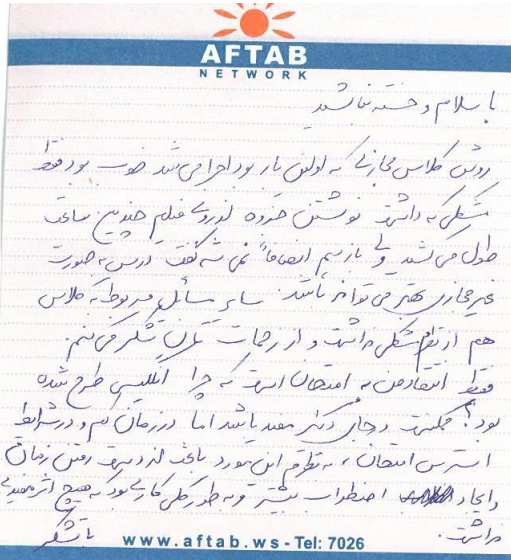 AFTAB
NETWORK
با سلام و خسته نباشید
روش کلاس مجازی که اولین بار بود اجرا می شد خوب بود فقط
مشکلی که داشت نوشتن جزوه از روی فیلم چندین ساعت
طول می کشید ولی باز هم انصافاً نمی شه گفت درس به صورت
غیر مجازی بهتر می تواند باشد. سایر مسائل مربوط به کلاس
هم از نظرم مشکلی نداشت و از زحمات تشکر می کنم.
فقط انتقاد من به امتحان است که چرا انگلیسی طرح شده
بود؟ ممکنست در جای دیگر مفید باشد اما در زمان کم و در شرایط
استرس امتحان، به نظرم این مورد باعث از دست رفتن زمان
و ایجاد اضطراب بیشتر و به طور کلی کاری بود که هیچ اثر مفیدی
نداشت.
با تشکر
www.aftab.ws - Tel: 7026